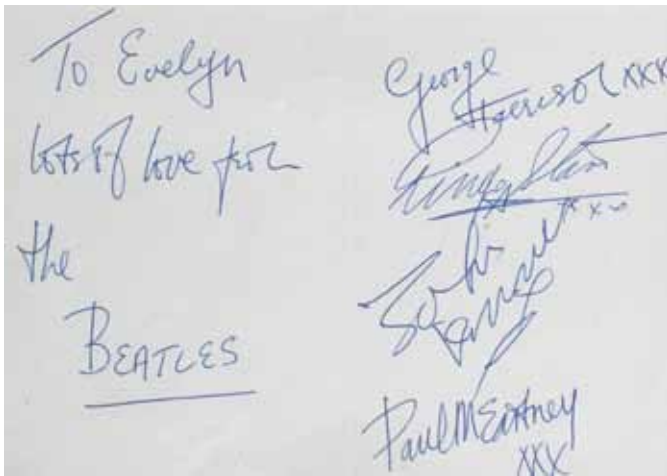 To Evelyn
lots of love from
the
BEATLES
George
Harrison xxx
Ringo Starr
xxx
John
Lennon
Paul McCartney
xxx